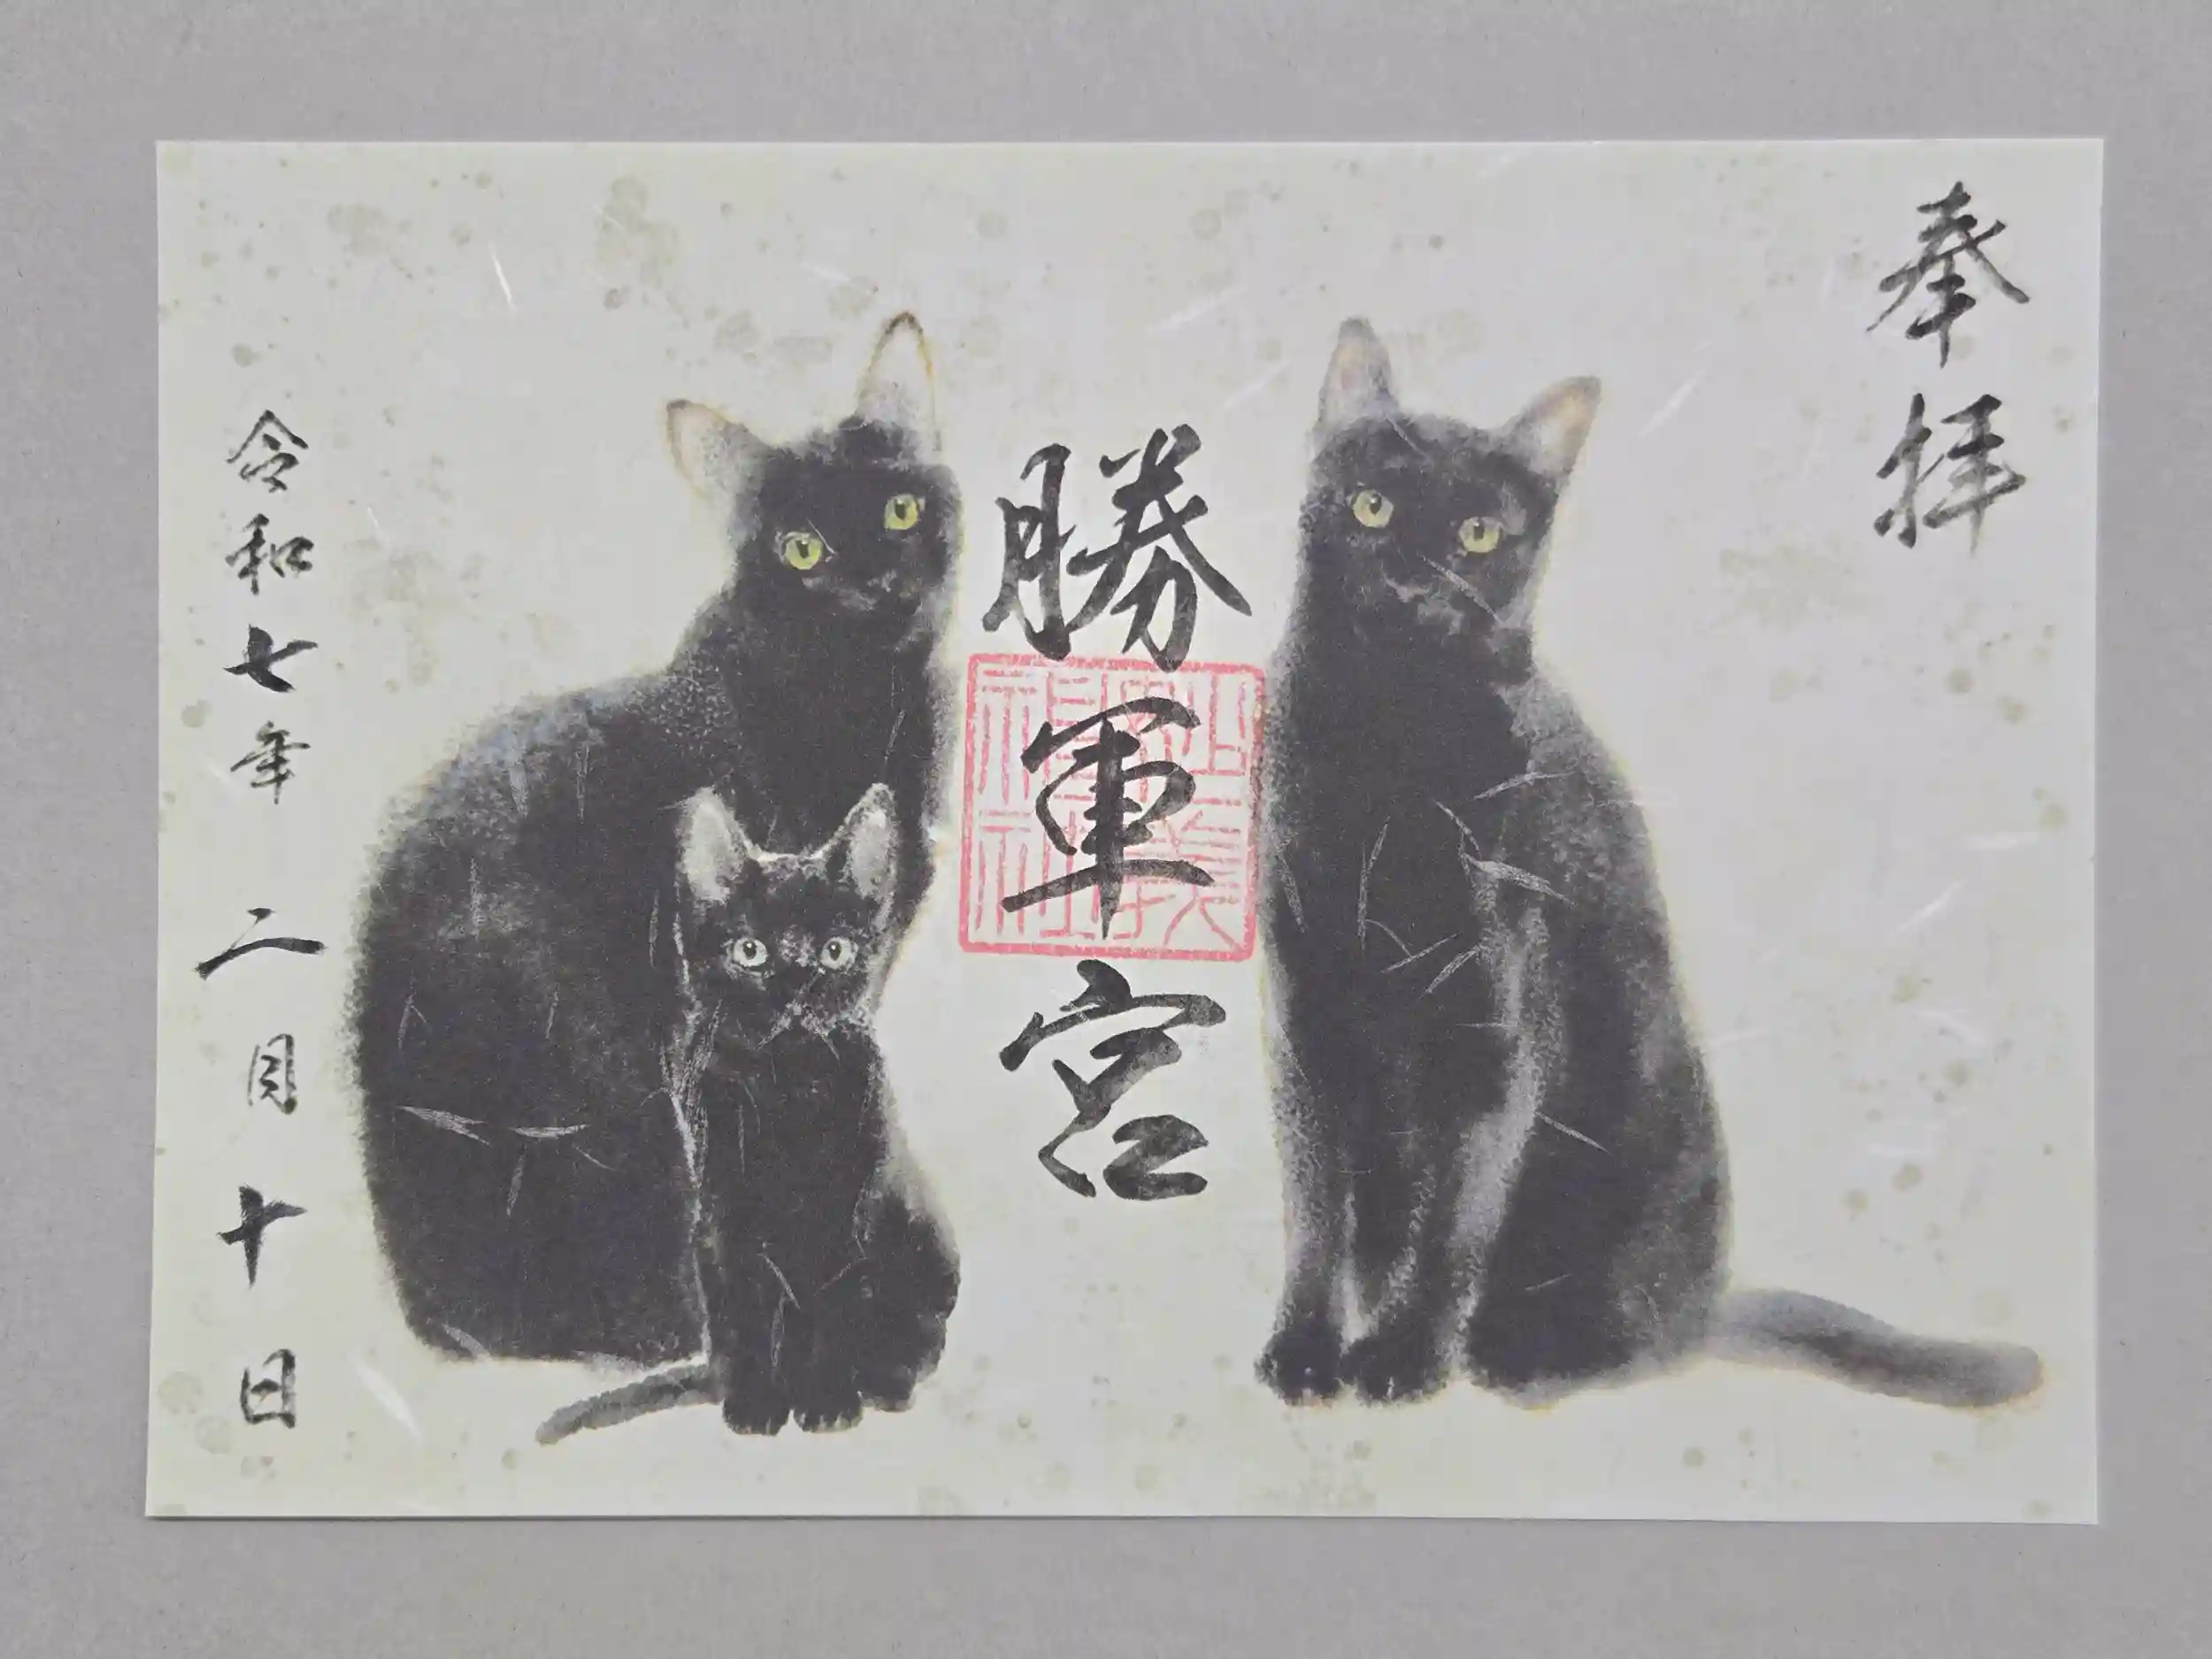 奉拝
勝軍宮
令和七年二月十日